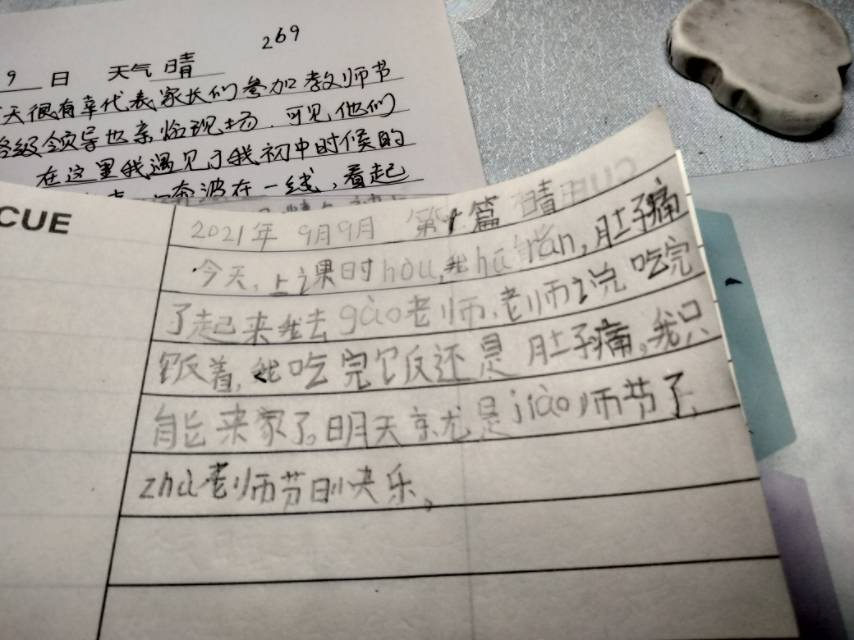 269
9 日 天气 晴
天很有幸代表家长们参加教师节
各级领导也亲临现场,可见他们
在这里我遇见了我初中时候的
奔波在一线,看起
CUE
2021年 9月9月 第1篇 晴
今天,上课时hòu,我hū rán,肚子痛
了起来我去gào老师,老师说吃完
饭着,我吃完饭还是肚子痛,我只
能来家了。明天京尤是jiào师节了,
zhù老师节日快乐,